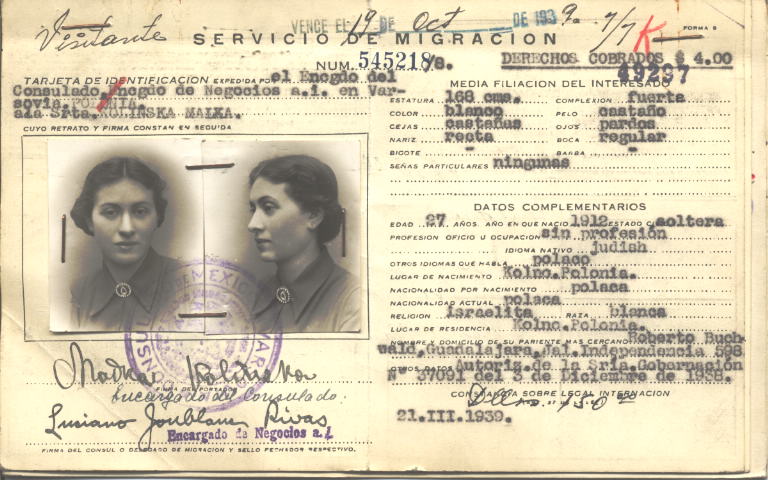 Visitante
VENCE EL 19 DE Oct DE 1939.
FORMA 8
SERVICIO DE MIGRACION
7/7 K
NUM. 545218/8.
DERECHOS COBRADOS $ 4.00
49297
TARJETA DE IDENTIFICACION EXPEDIDA POR el Encgdo del
Consulado, Encgdo de Negocios a.i. en Var-
sovia, POLONIA.
a la Srta. KOLINSKA MALKA.
CUYO RETRATO Y FIRMA CONSTAN EN SEGUIDA
MEXICO
FIRMA DEL PORTADOR
Encargado del Consulado:
Luciano Joublanc Rivas
Encargado de Negocios a.i.
FIRMA DEL CONSUL O DELEGADO DE MIGRACION Y SELLO FECHADOR RESPECTIVO.
MEDIA FILIACION DEL INTERESADO
ESTATURA 168 cms. COMPLEXION fuerte
COLOR blanco PELO castaño
CEJAS castañas OJOS pardos
NARIZ recta BOCA regular
BIGOTE " BARBA "
SEÑAS PARTICULARES ningunas
DATOS COMPLEMENTARIOS
EDAD 27 AÑOS. AÑO EN QUE NACIO 1912 ESTADO CIVIL soltera
PROFESION OFICIO U OCUPACION sin profesión
IDIOMA NATIVO judish
OTROS IDIOMAS QUE HABLA polaco
LUGAR DE NACIMIENTO Kolno, Polonia.
NACIONALIDAD POR NACIMIENTO polaca
NACIONALIDAD ACTUAL polaca
RELIGION israelita RAZA blanca
LUGAR DE RESIDENCIA Kolno, Polonia.
NOMBRE Y DOMICILIO DE SU PARIENTE MAS CERCANO Roberto Buch-
wald, Guadalajara, Jal. Independencia 598
OTROS DATOS Autoriz. de la Sria. Gobernación
N° 37091 del 3 de Diciembre de 1938.
CONSTANCIA SOBRE LEGAL INTERNACION
21.III.1939.